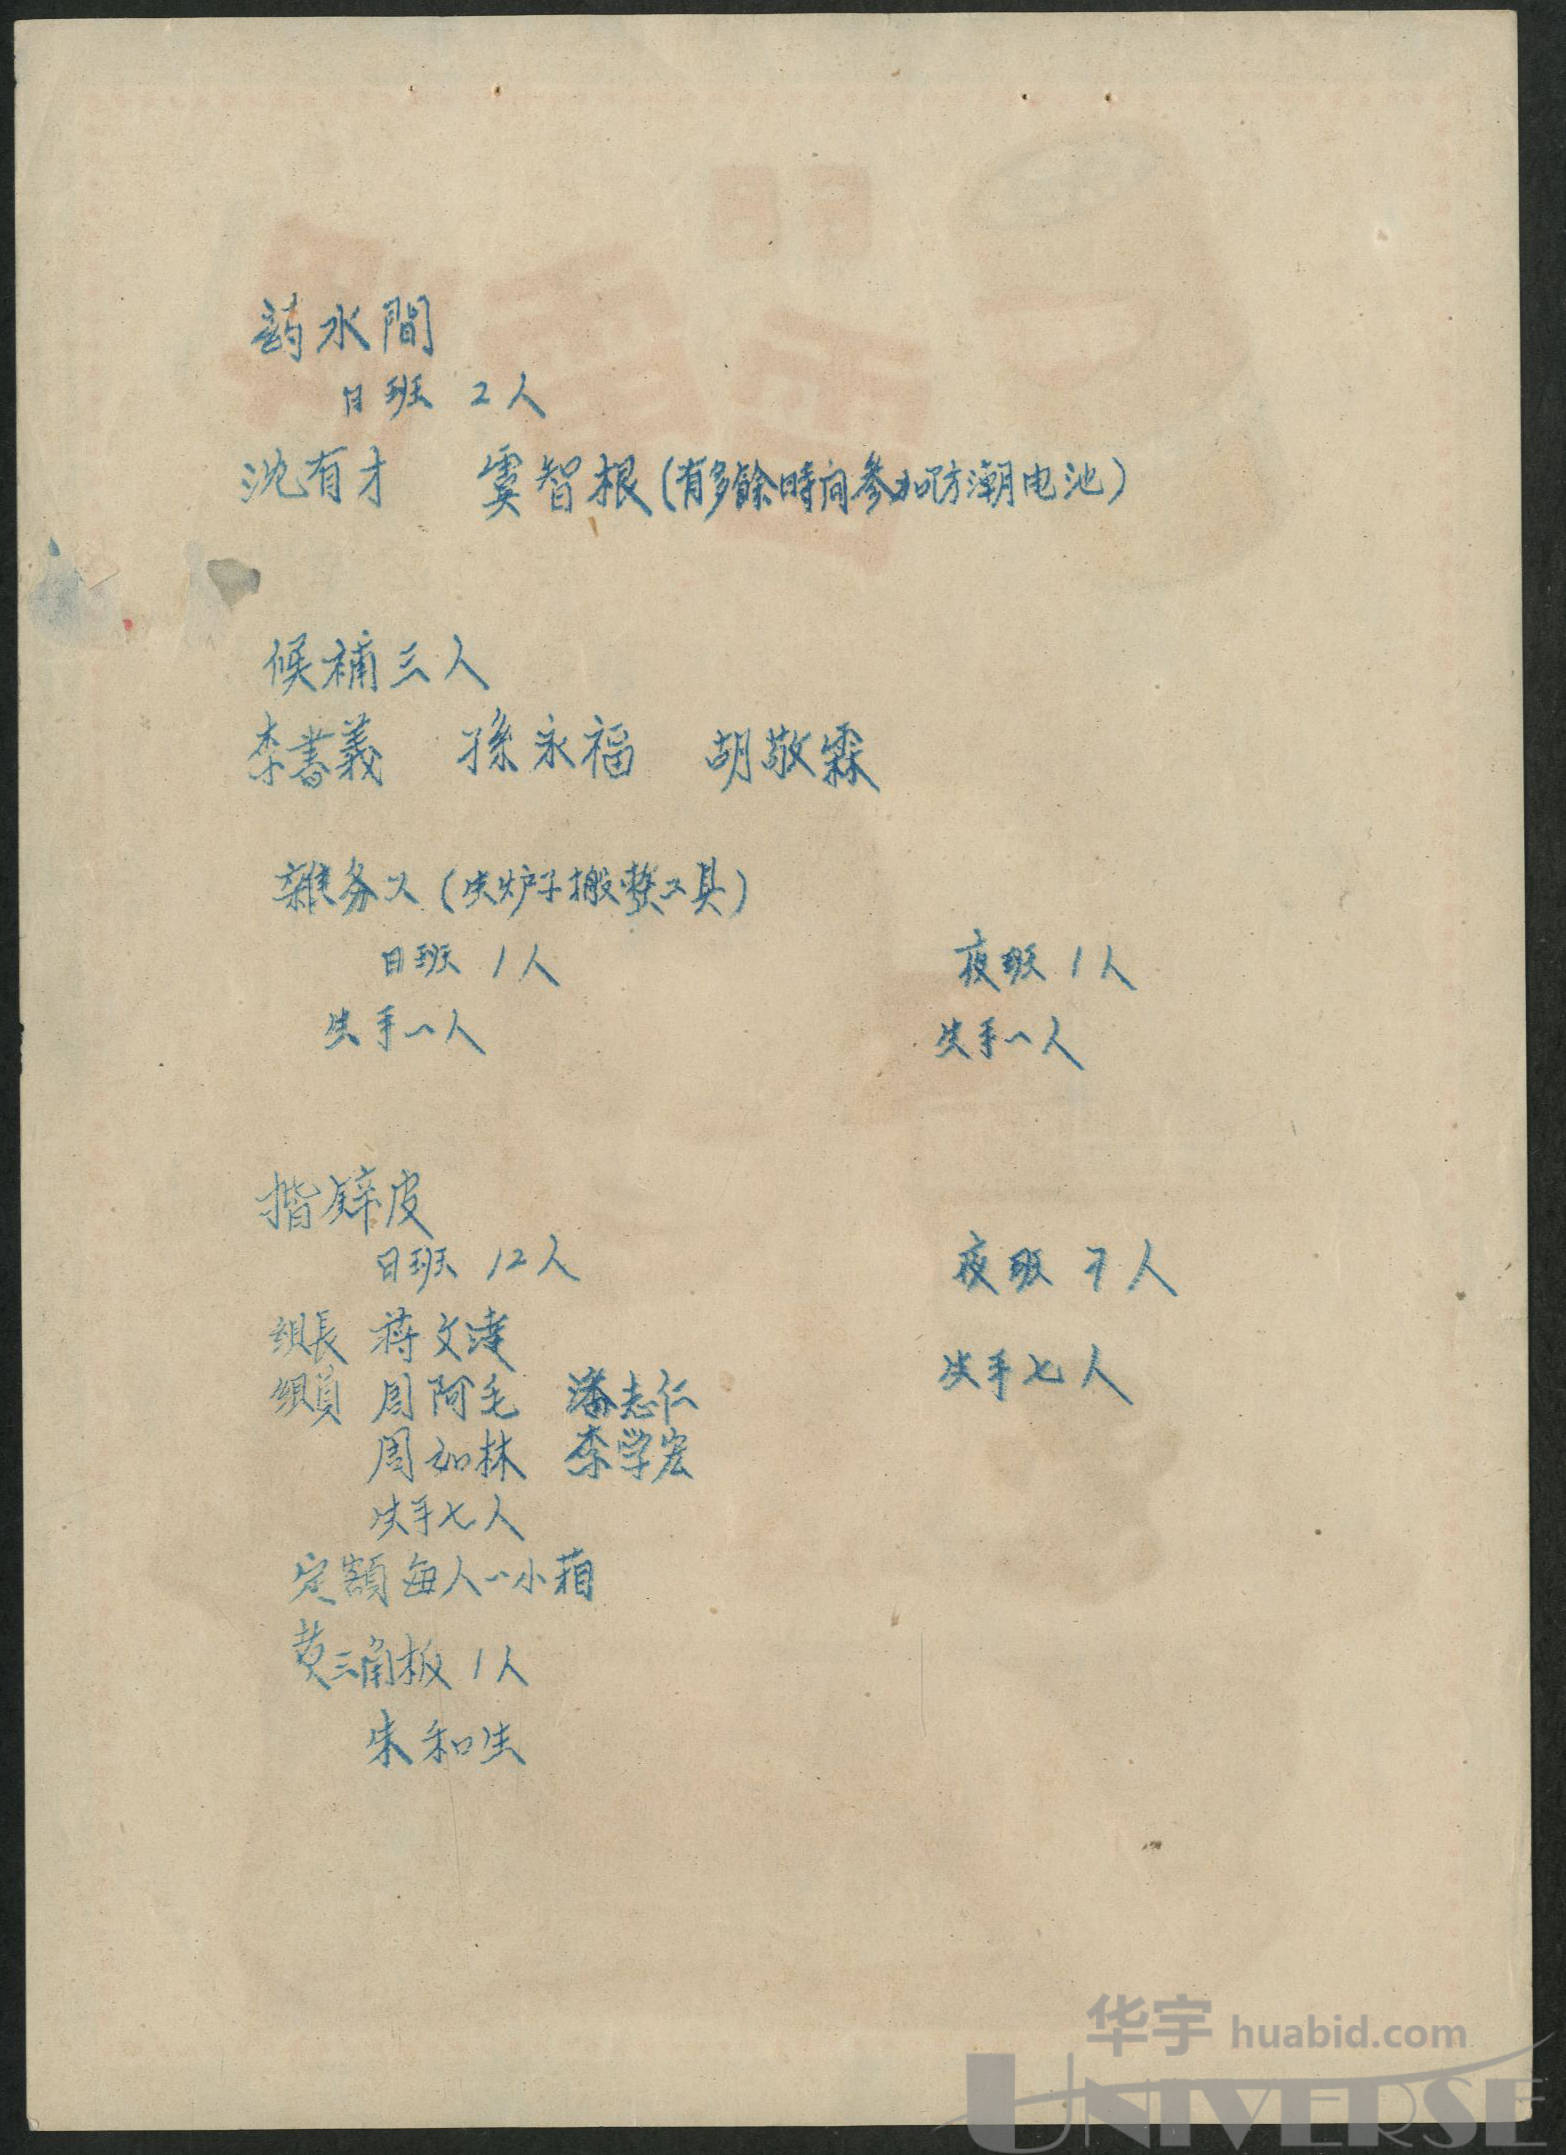 药水間
日班 2人
沈有才 虞智根(有多餘時间参加防潮电池)
候補三人
李書義 孫永福 胡敬霖
雜务工(生炉子搬整工具)
日班 1人 夜班 1人
生手一人 生手一人
揩锌皮
日班 12人 夜班 7人
組長 蒋文
組員 周阿毛 潘志仁 生手七人
周如林 李学宏
生手七人
定額每人一小箱
黄三角板 1人
朱和生
华宇 huabid.com
UNIVERSE